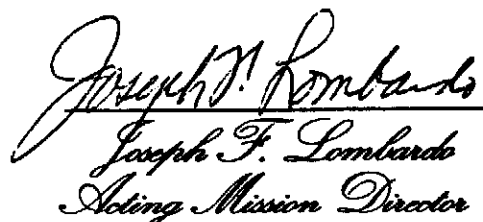 Joseph F. Lombardo
Joseph F. Lombardo
Acting Mission Director